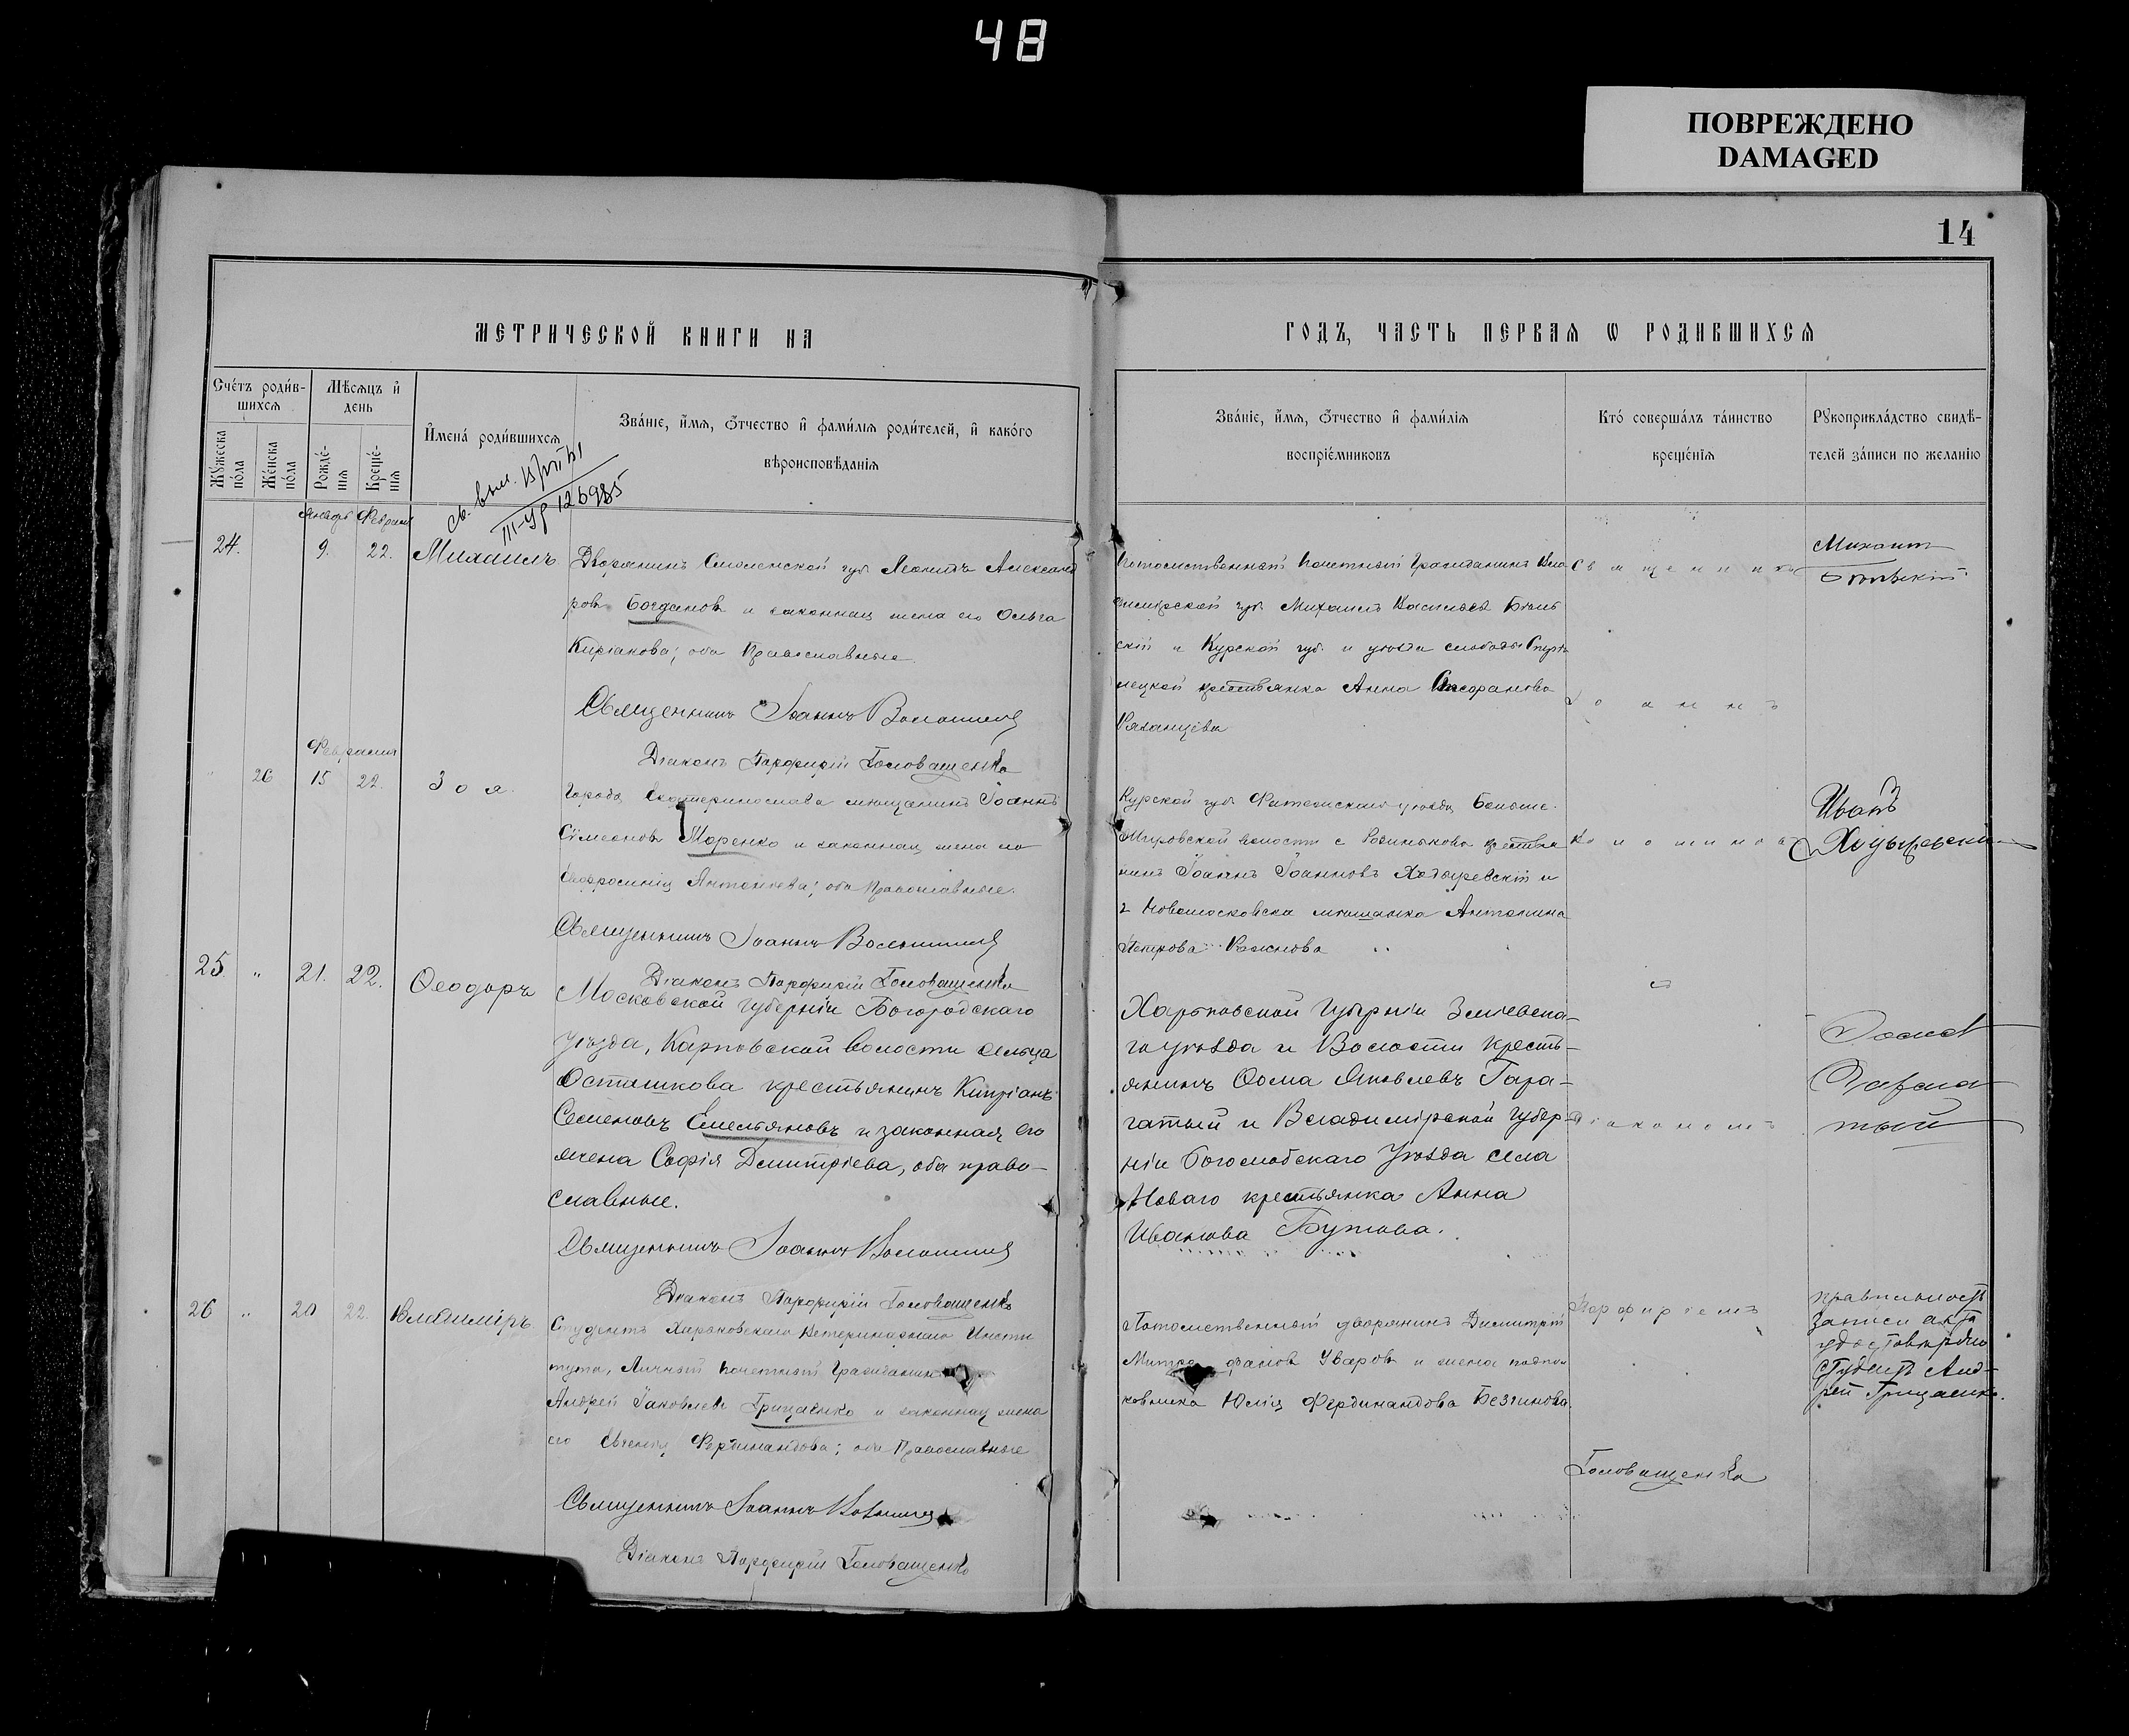 48
ПОВРЕЖДЕНО
DAMAGED
14
МЕТРИЧЕСКОЙ КНИГИ НА
ГОДЪ, ЧАСТЬ ПЕРВАЯ Ѡ РОДИВШИХСЯ
Счетъ родив-
шихся
Мѣсяцъ и
день
Мужеска
пола
Женска
пола
Рожде-
нія
Креще-
нія
Имена родившихся
Званіе, имя, отчество и фамилія родителей, и какого
вѣроисповѣданія
Званіе, имя, отчество и фамилія
воспріемниковъ
Кто совершалъ таинство
крещенія
Рукоприкладство свидѣ-
телей записи по желанію
св. вып.
III-УР 126985
Январь Февраль
24. 9. 22. Михаилъ
Дворянинъ Смоленской губ. Леонитъ Александ
ровъ Богдановъ и законная жена его Ольга
Киріакова; оба Православные.
Священникъ Іоаннъ
Діаконъ Парфирій Головащенко
Потомственный Почетный Гражданинъ Вла
димірской губ. Михаилъ Васильевъ
скій и Курской губ. и уѣзда слободы
крестьянка Анна
Рязанцева
Священникъ
Іоаннъ
Михаилъ
Февраля
26 15 22. Зоя.
Города Екатеринослава мѣщанинъ Іоаннъ
Сѵмеоновъ Моренко и законная жена его
Евфросинія Антоніева; оба Православные.
Священникъ Іоаннъ
Діаконъ Парфирій Головащенко
Курской губ. Фатежскаго уѣзда Больше-
волости с. крестья
нинъ Іоаннъ Іоанновъ Ходыревскій и
г. Новомосковска мѣщанка Антонина
Петрова
Иванъ
Ходыревскій
25. " 21. 22. Ѳеодоръ
Московской губерніи Богородскаго
уѣзда, Карповской волости сельца
Осташкова крестьянинъ Кипріанъ
Семеновъ Емельяновъ и законная его
жена Софія Дмитріева, оба право-
славные.
Священникъ Іоаннъ
Діаконъ Парфирій Головащенко
Харьковской Губерніи Зміевска-
го уѣзда и Волости кресть-
янинъ Ѳома Яковлевъ Гара-
гатый и Владимірской Губер-
ніи Уѣзда села
Новаго крестьянка Анна
Иванова Бутова.
съ
Діакономъ
26 " 20 22. Владиміръ
Студентъ Харьковскаго Ветеринарнаго Инсти
тута, Личный Почетный Гражданинъ
Андрей Іаковлевъ Грицаенко и законная жена
его Евгенія Фердинандова; оба Православные
Священникъ Іоаннъ
Діаконъ Парфирій Головащенко
Потомственный дворянинъ Димитрій
Митрофановъ Уваровъ и жена подпол
ковника Юлія Фердинандова Безгинова.
Порфиріемъ
Головащенко
правильность
записи акта
удостовѣряю
студентъ Анд-
рей Грицаенко.